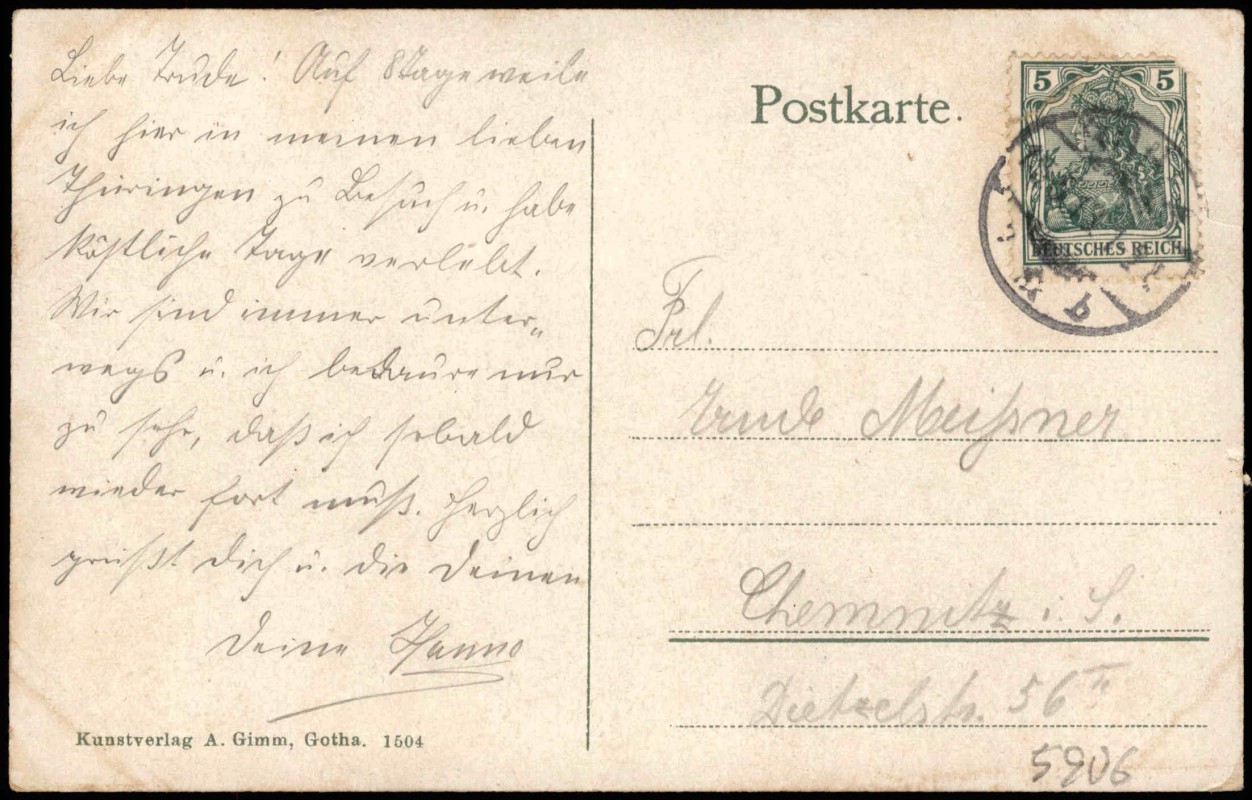 Liebe Trude! Auf 8 Tage weile
ich hier in meinem lieben
Thüringen zu Besuch u. habe
köstliche Tage verlebt.
Wir sind immer unter„
wegs u. ich bedaure nur
zu sehr, daß ich sobald
wieder fort muß. Herzlich
grüßt Dich u. die Deinen
Deine Hanno
Kunstverlag A. Gimm, Gotha. 1504
Postkarte.
5 5
DEUTSCHES REICH
Frl.
Trude Meißner
Chemnitz i. S.
Dietzelstr. 56 II
5906